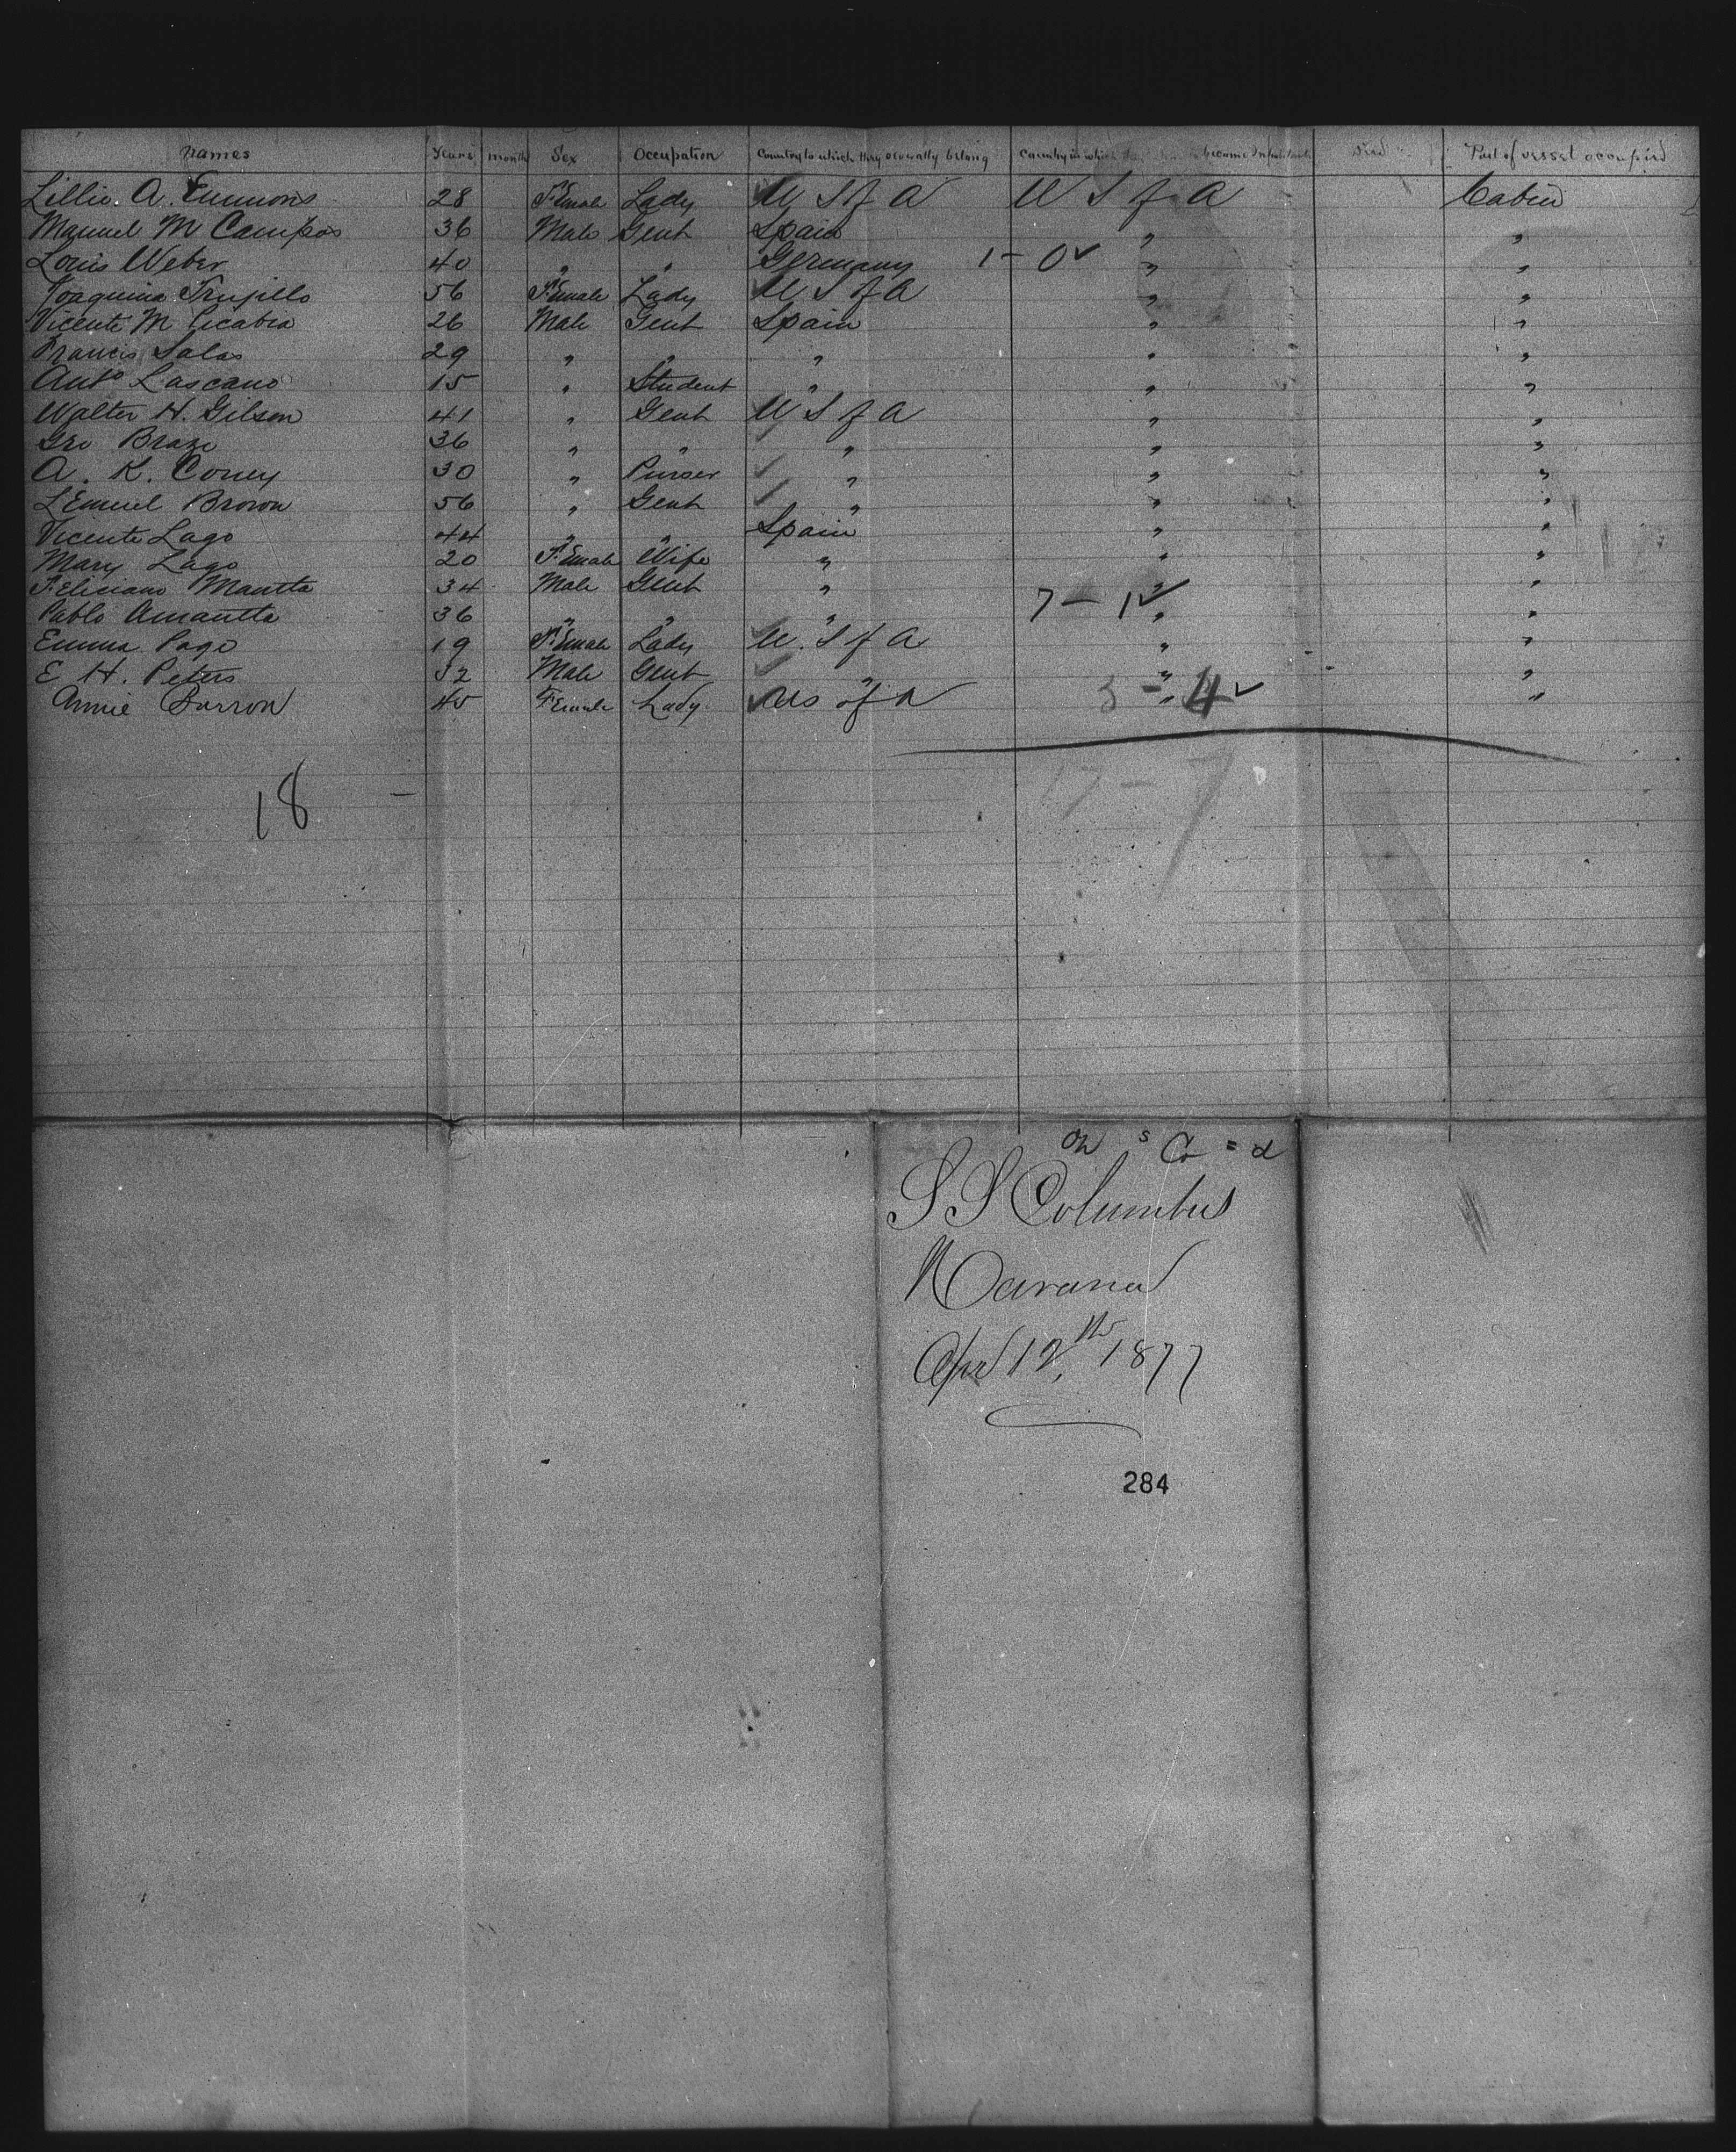 Names Years month Sex Occupation Country to which they severally belong Country in which they become Inhabitants Died Part of vessel occupied
Lillie A. Emmons 28 Female Lady U S of A U S of A Cabin
Manuel M Campos 36 Male Gent Spain " "
Louis Weber 40 " " Germany 1 - 0 ✓ " "
Joaquina Trujillo 56 Female Lady U S of A " "
Vicente M 26 Male Gent Spain " "
Francis Salas 29 " " " " "
Anto Lascano 15 " Student " " "
Walter H. Gibson 41 " Gent U S of A " "
Geo 36 " " " " "
A. K. Coney 30 " Purser " " "
Lemuel Brown 56 " Gent " " "
Vicente Lago 44 " " Spain " "
Mary Lago 20 Female Wife " " "
Feliciano Mantta 34 Male Gent " " "
7 - 1 ✓
Pablo Amantta 36 " " " " "
Emma Page 19 Female Lady U. S of A " "
E H. Peters 32 Male Gent " " "
Annie Barron 45 Female Lady. US of A " "
3 - 4 ✓
17 - 7
18 -
S S Columbus
Havana
Apr 12th, 1877
284